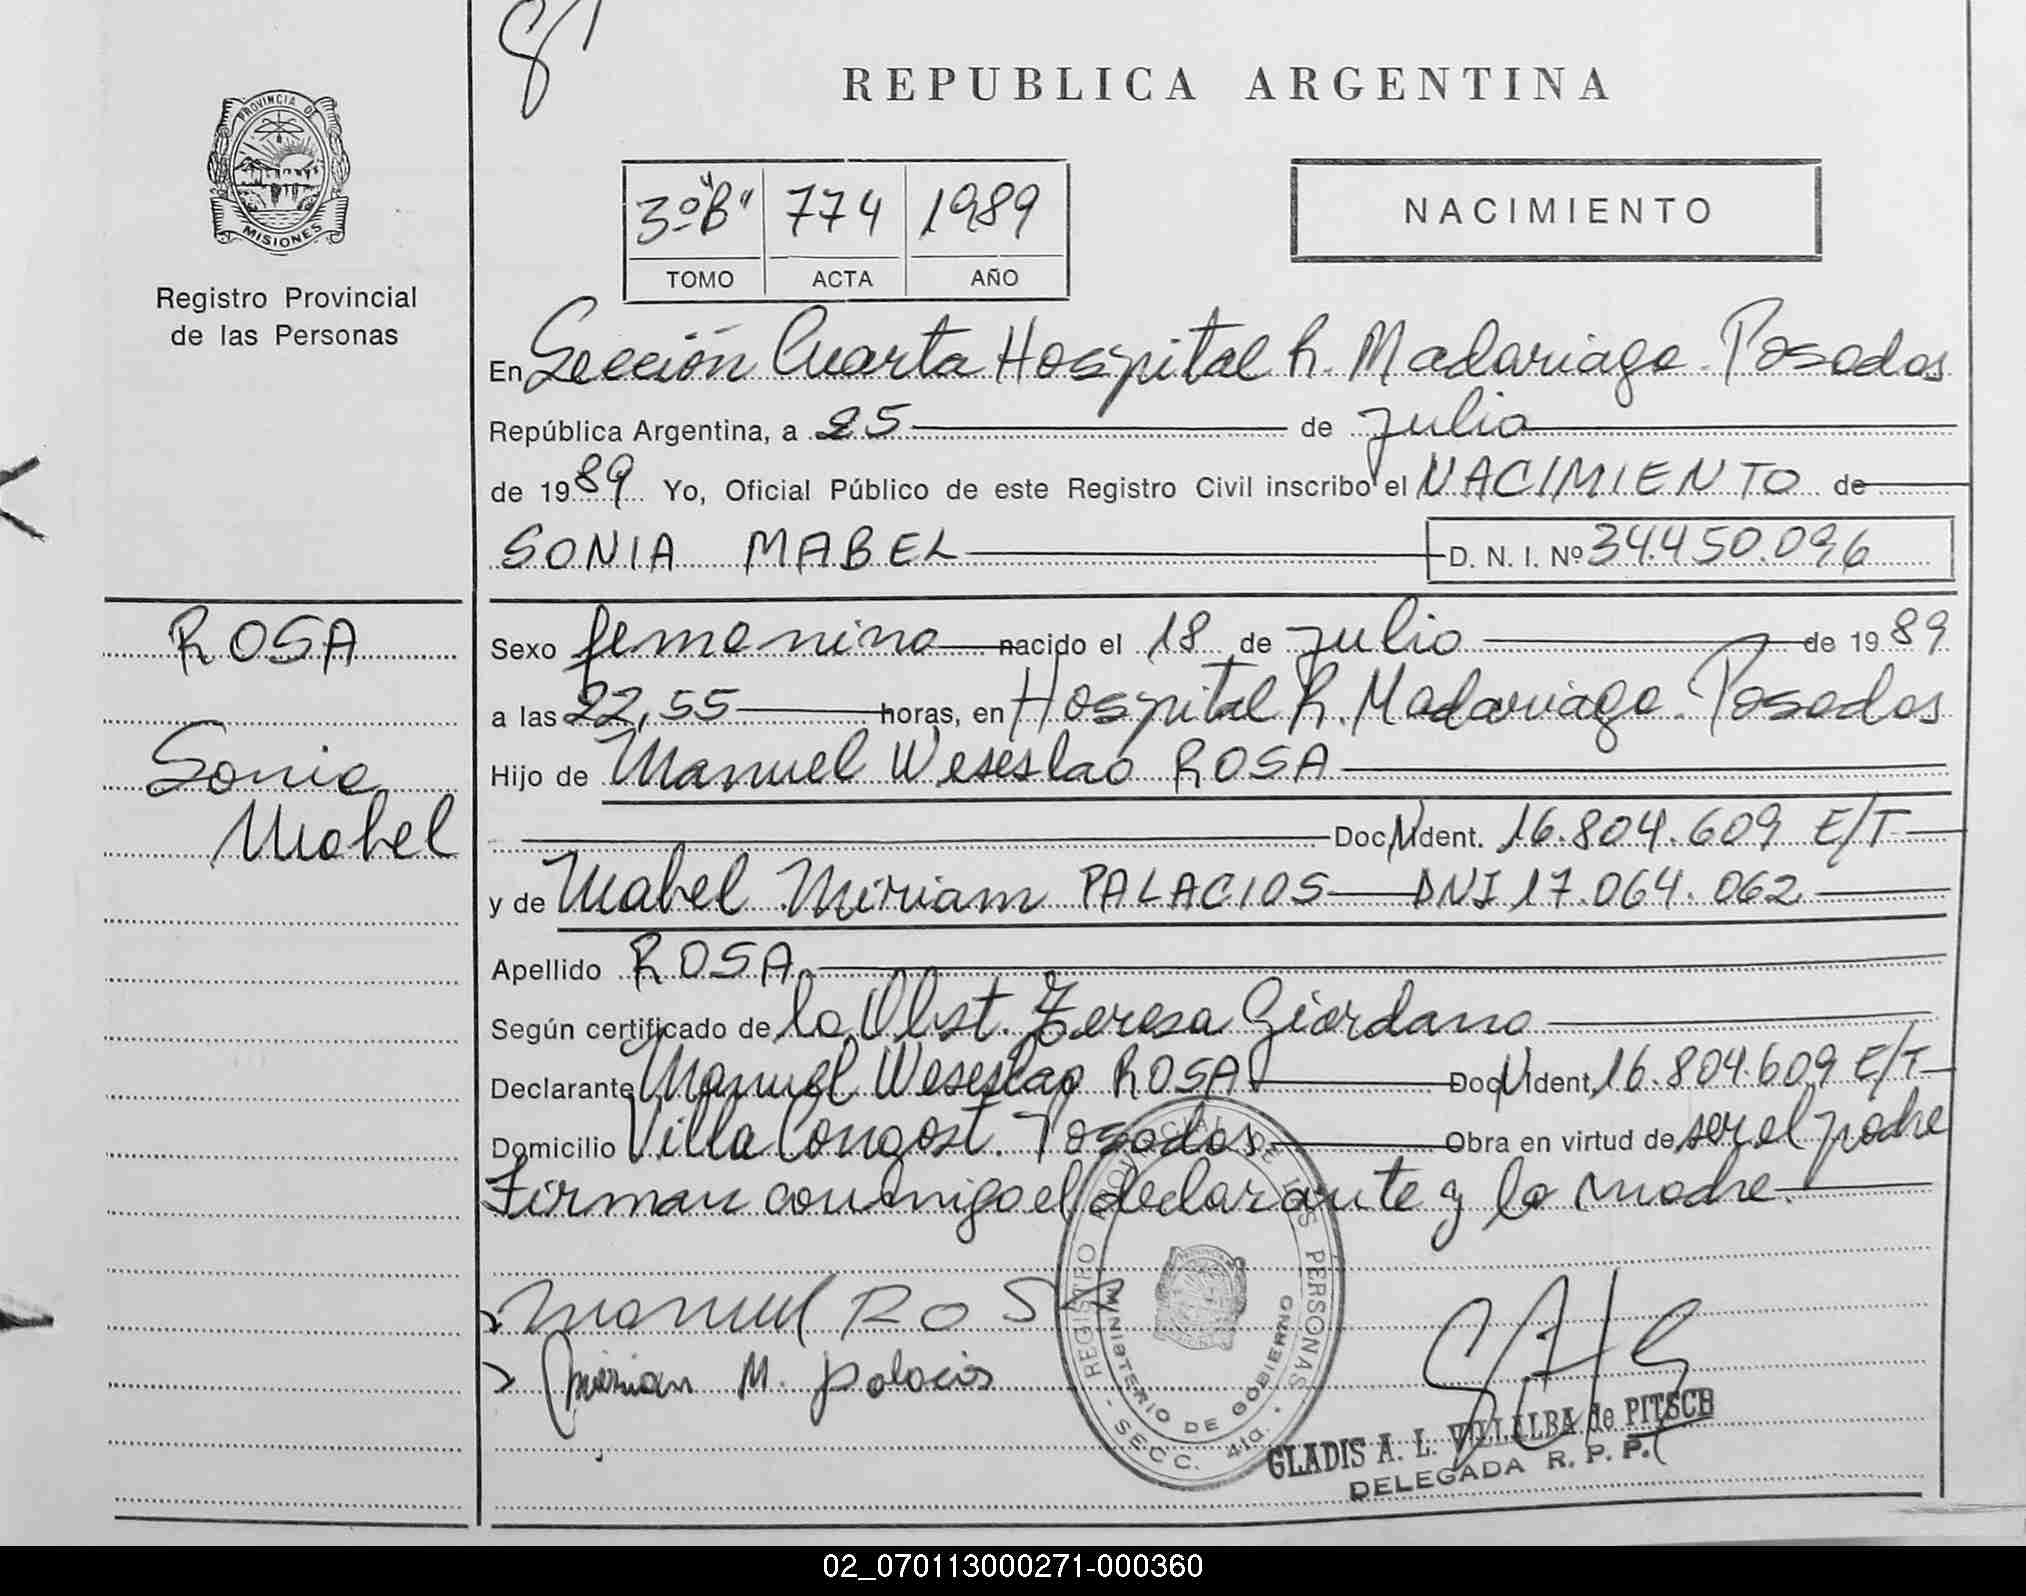 REPUBLICA ARGENTINA
PROVINCIA DE
MISIONES
Registro Provincial
de las Personas
3º "B" 774 1989
TOMO ACTA AÑO
NACIMIENTO
En Sección Cuarta Hospital R. Madariaga. Posadas
República Argentina, a 25 de julio
de 1989 Yo, Oficial Público de este Registro Civil inscribo el NACIMIENTO de
SONIA MABEL D. N. I. Nº 34.450.096
ROSA
Sonia
Mabel
Sexo femenino nacido el 18 de julio de 1989
a las 22,55 horas, en Hospital R. Madariaga. Posadas
Hijo de Manuel Weseslao ROSA
Doc. N ident. 16.804.609 E/T
y de Mabel Miriam PALACIOS DNI 17.064.062
Apellido ROSA
Según certificado de la Obst. Teresa Giordano
Declarante Manuel Weseslao ROSA Doc N ident, 16.804.609 E/T
Domicilio Villa Congost. Posadas Obra en virtud de ser el padre
Firman conmigo el declarante y la madre.
Manuel ROSA
Mirian M. palacios
REGISTRO PROVINCIAL DE LAS PERSONAS
MINISTERIO DE GOBIERNO
- SECC. 4ta. -
GLADIS A. L. VILLALBA de PITSCH
DELEGADA R. P. P.
02_070113000271-000360